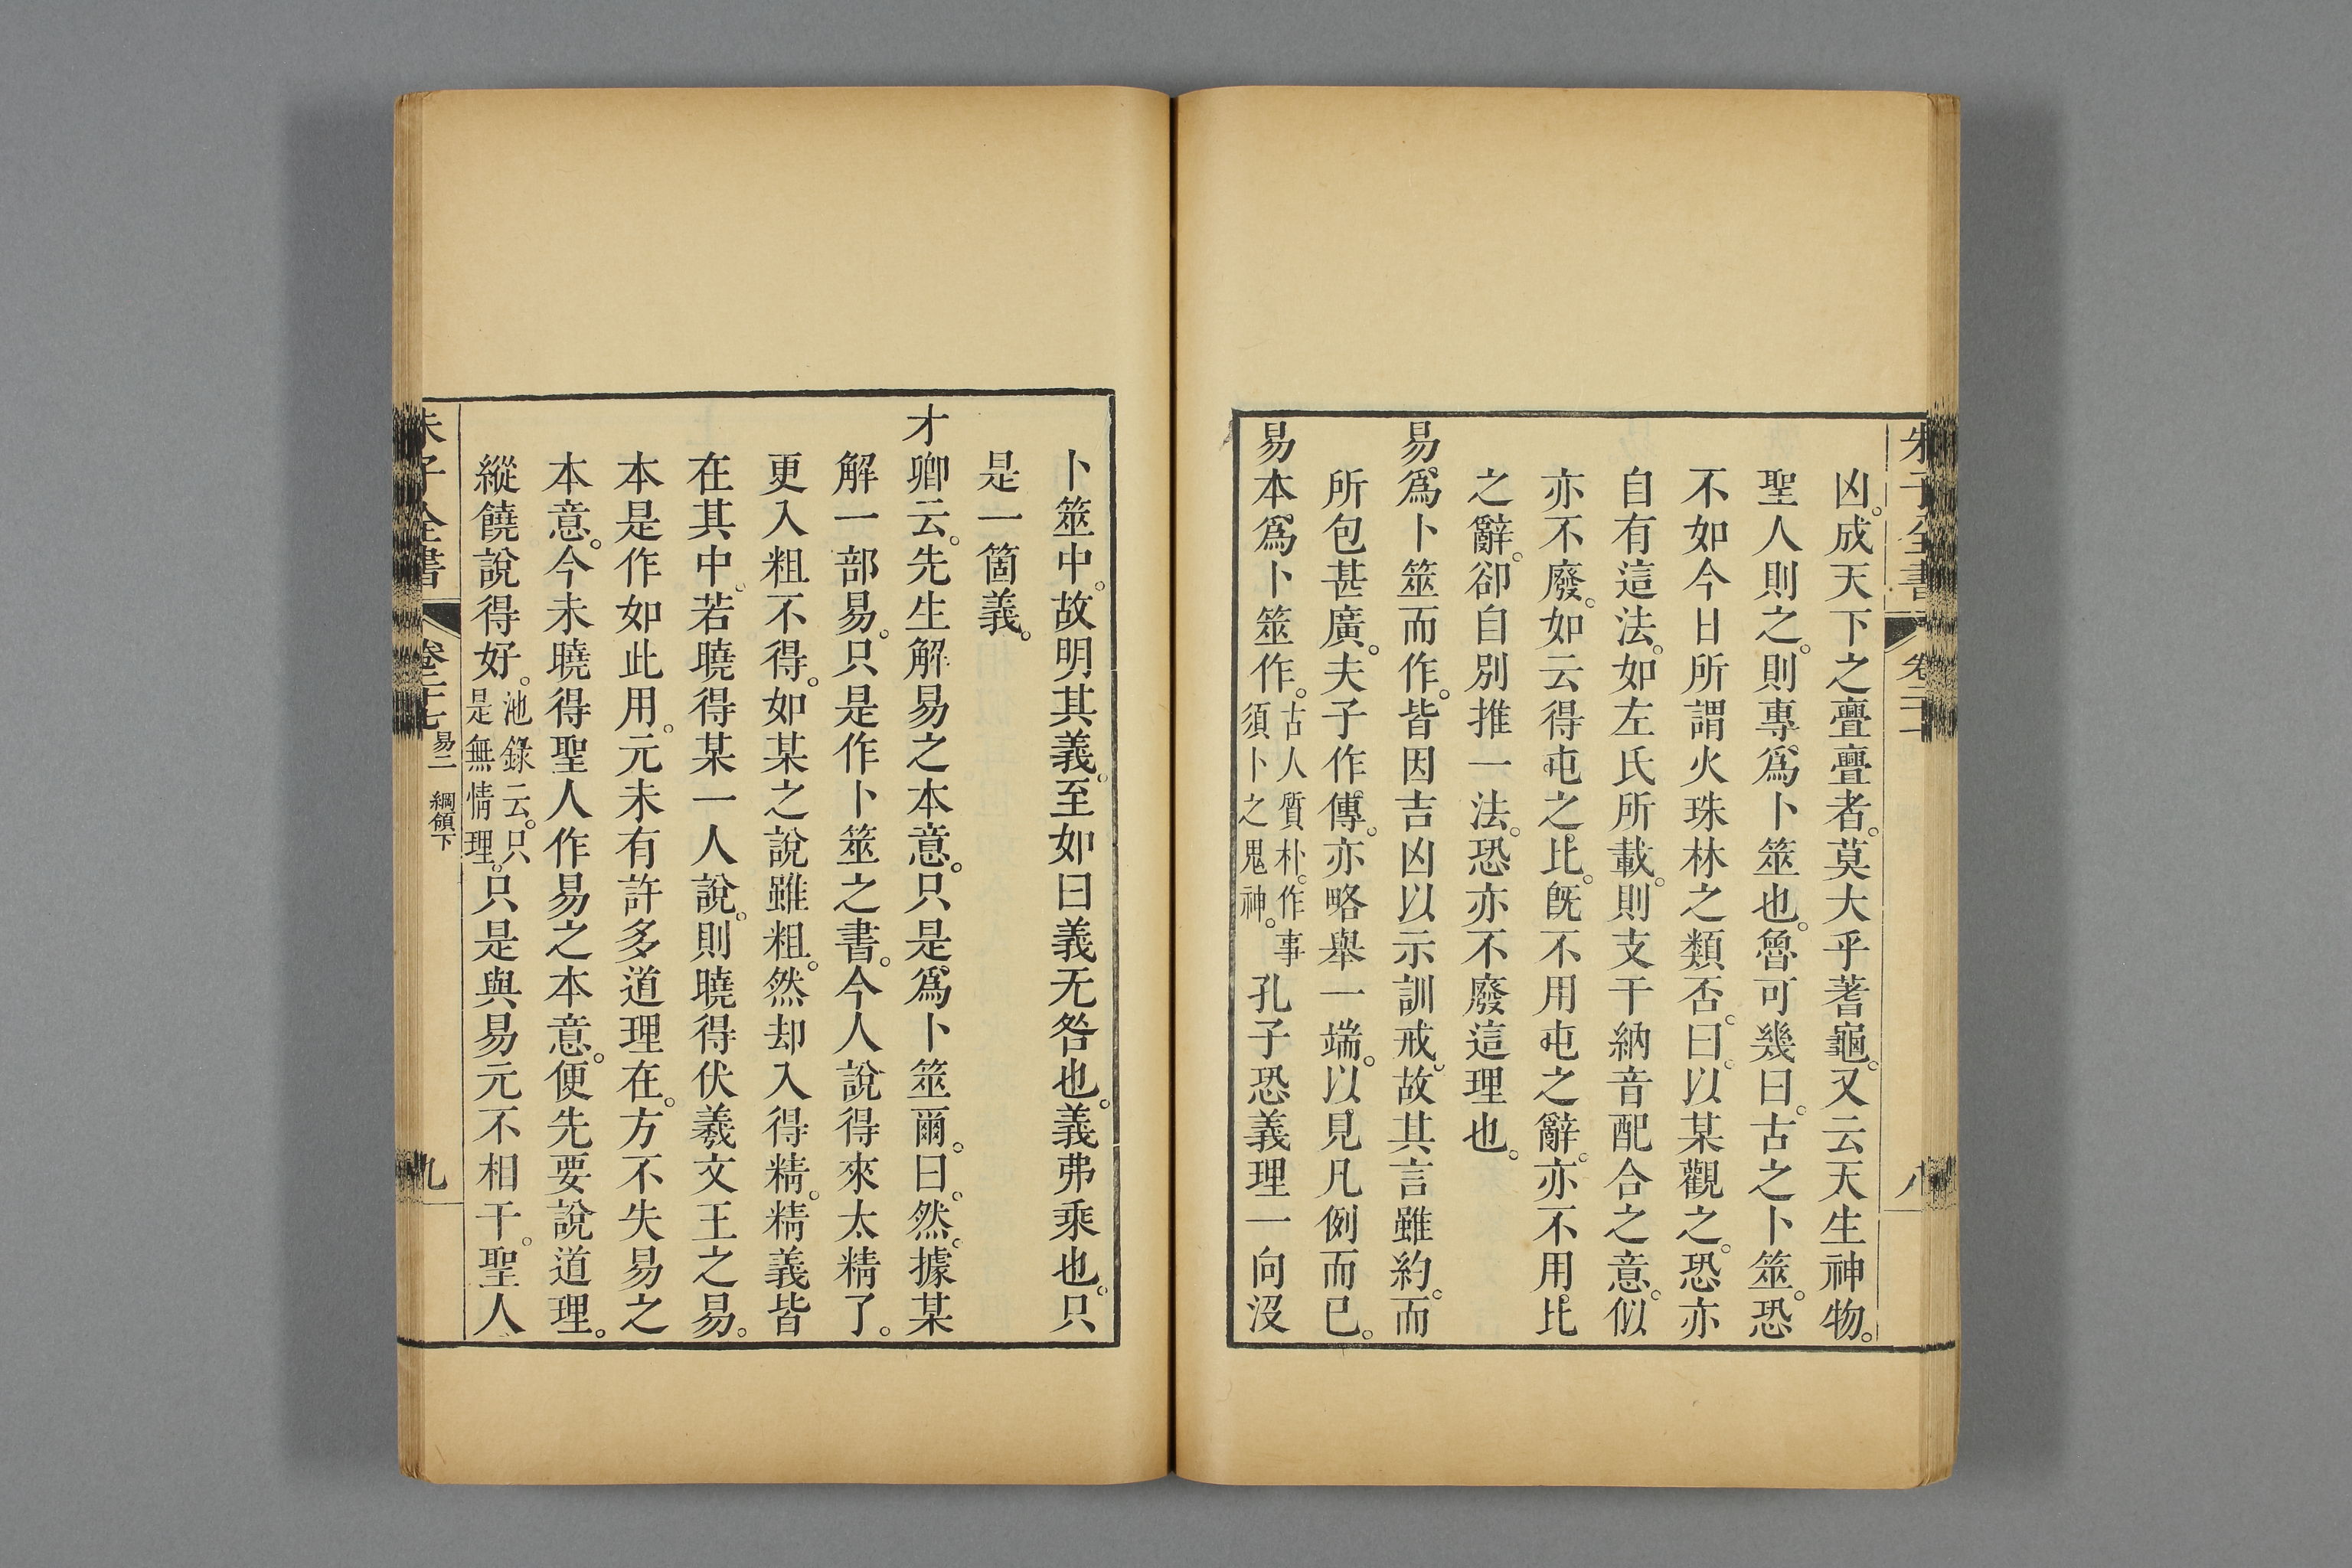 朱子全書 卷二 八
凶。成天下之亹亹者。莫大乎蓍龜。又云天生神物。
聖人則之。則專爲卜筮也。魯可幾曰。古之卜筮。恐
不如今日所謂火珠林之類否。曰。以某觀之。恐亦
自有這法。如左氏所載。則支干納音配合之意。似
亦不廢。如云得屯之比。旣不用屯之辭。亦不用比
之辭。卻自別推一法。恐亦不廢這理也。
易爲卜筮而作。皆因吉凶以示訓戒。故其言雖約。而
所包甚廣。夫子作傳。亦略舉一端。以見凡例而已。
易本爲卜筮作。古人質朴。作事須卜之鬼神。孔子恐義理一向沒
卜筮中。故明其義。至如曰義无咎也。義弗乘也。只
是一箇義。
才卿云。先生解易之本意。只是爲卜筮爾。曰。然。據某
解一部易。只是作卜筮之書。今人說得來太精了。
更入粗不得。如某之說雖粗。然却入得精。精義皆
在其中。若曉得某一人說。則曉得伏羲文王之易。
本是作如此用。元未有許多道理在。方不失易之
本意。今未曉得聖人作易之本意。便先要說道理。
縱饒說得好。池錄云。只是無情理。只是與易元不相干。聖人
朱子全書 卷二十七 易二 綱領下 九